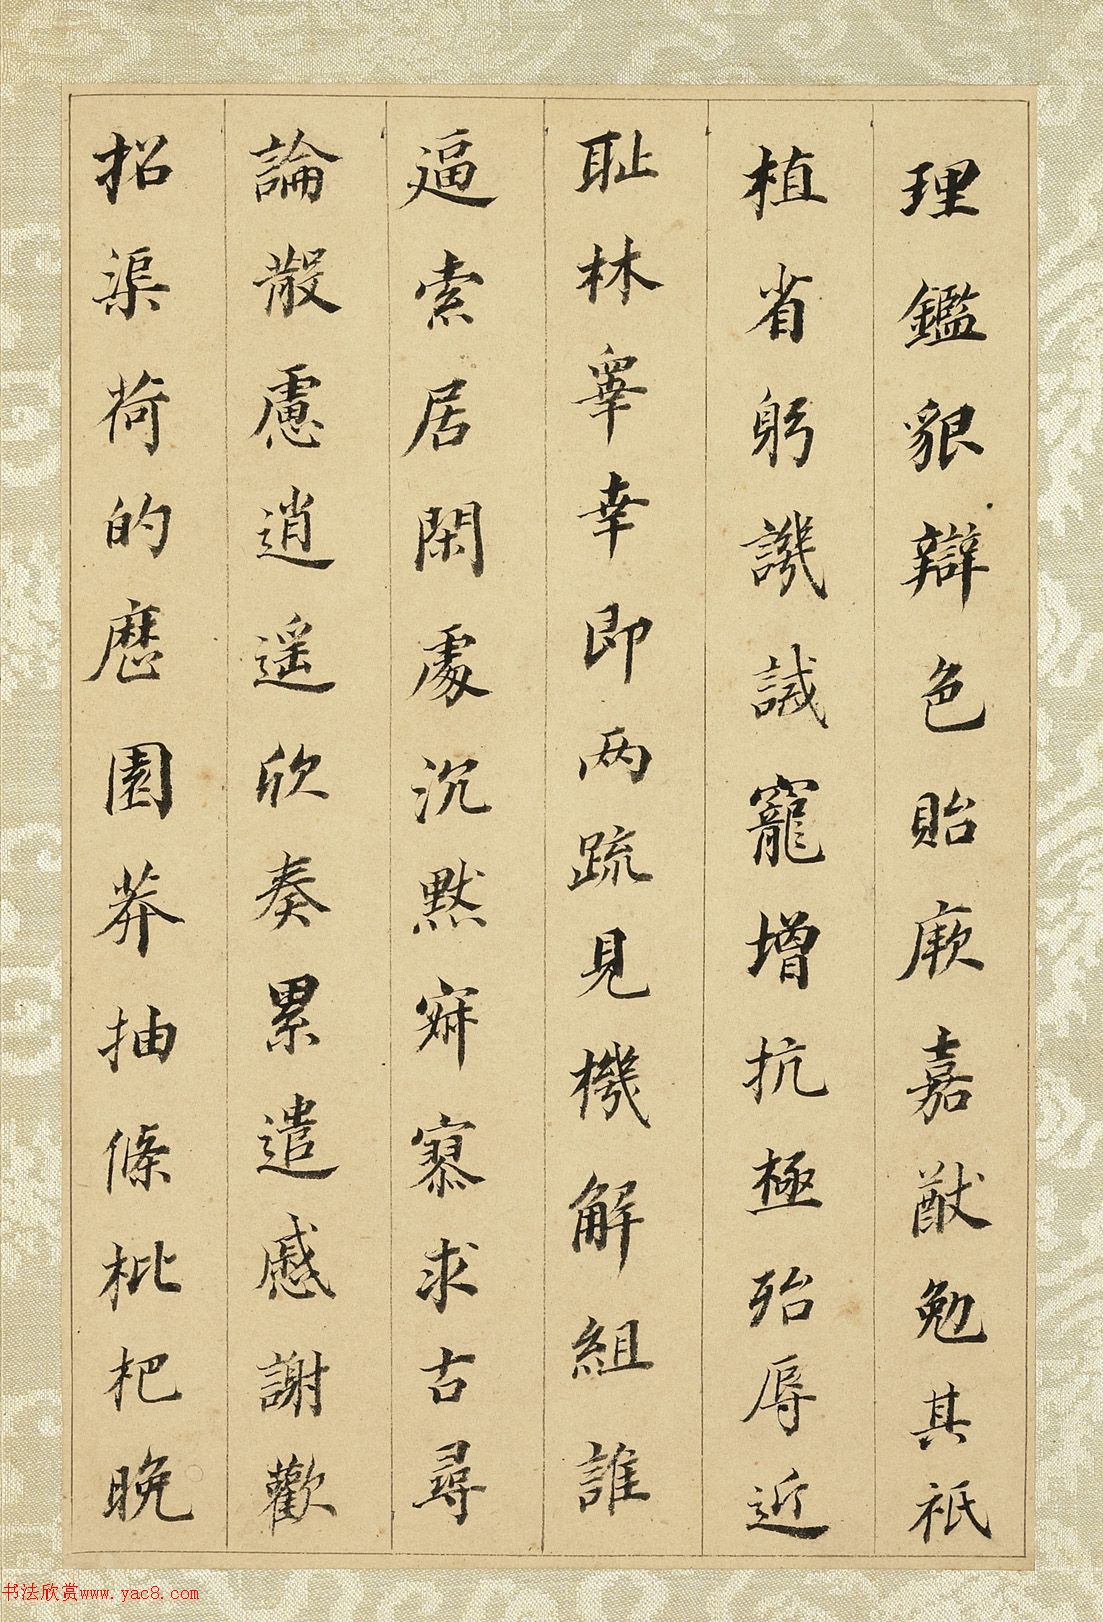 理鑑貌辯色貽厥嘉猷勉其祗
植省躬譏誡寵增抗極殆辱近
耻林睾幸即兩疏見機解組誰
逼索居閑處沉默寂寥求古尋
論散慮逍遥欣奏累遣慼謝歡
招渠荷的歷園莽抽條枇杷晚
书法欣赏www.yac8.com